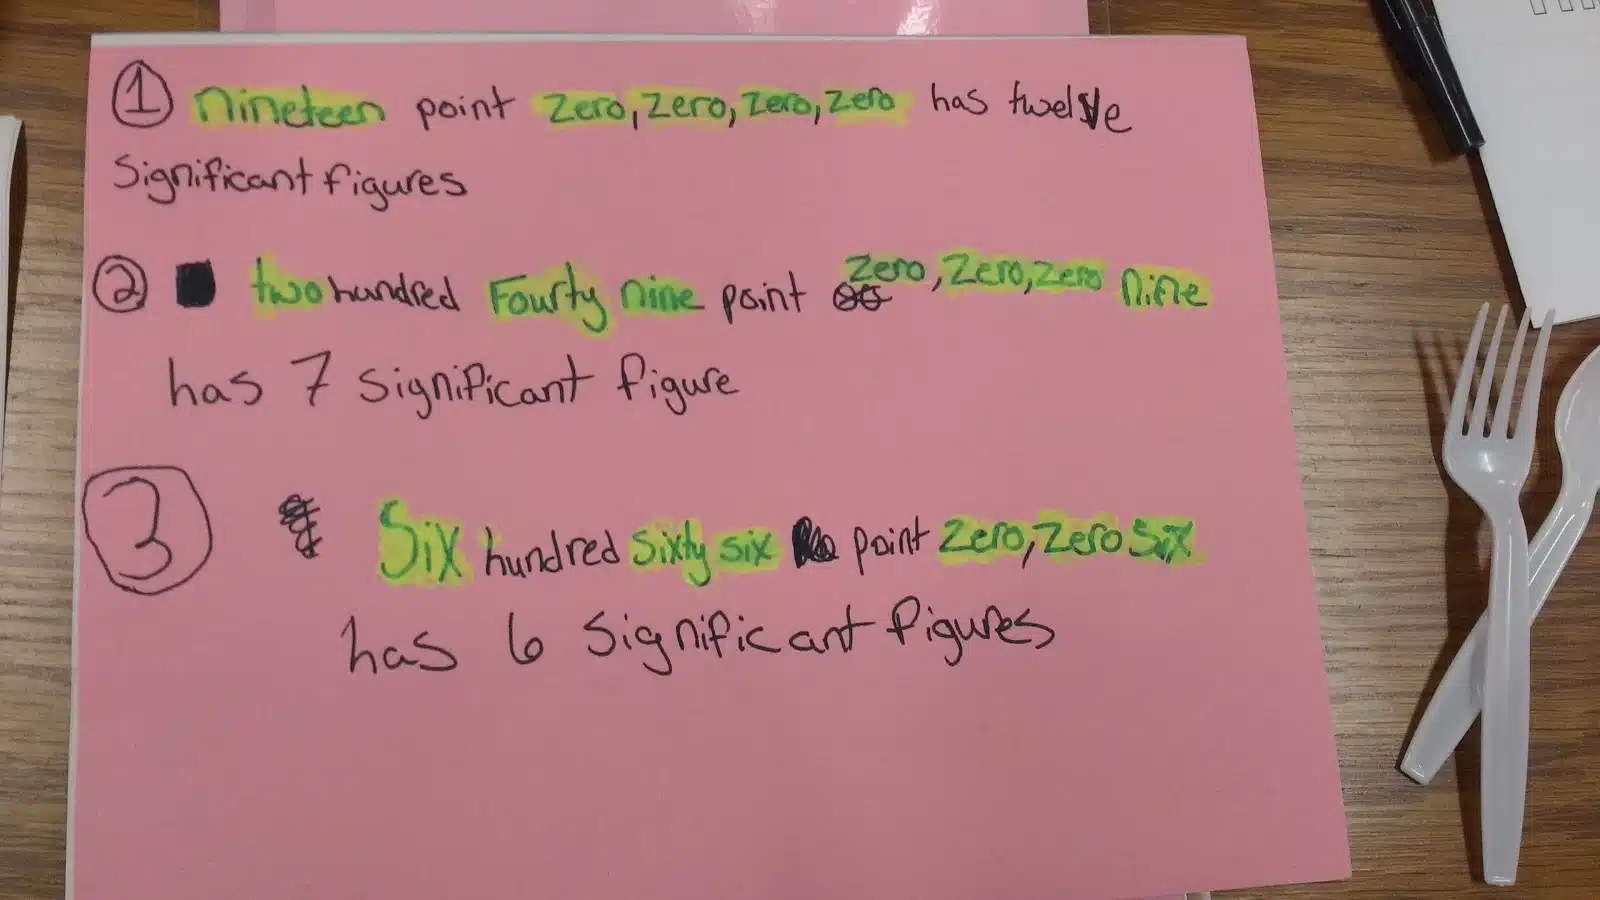 1 Nineteen point zero, zero, zero, zero has twelve
significant figures
2 two hundred Fourty nine point zero, zero, zero nine
has 7 significant figure
3 Six hundred sixty six point zero, zero six
has 6 significant figures